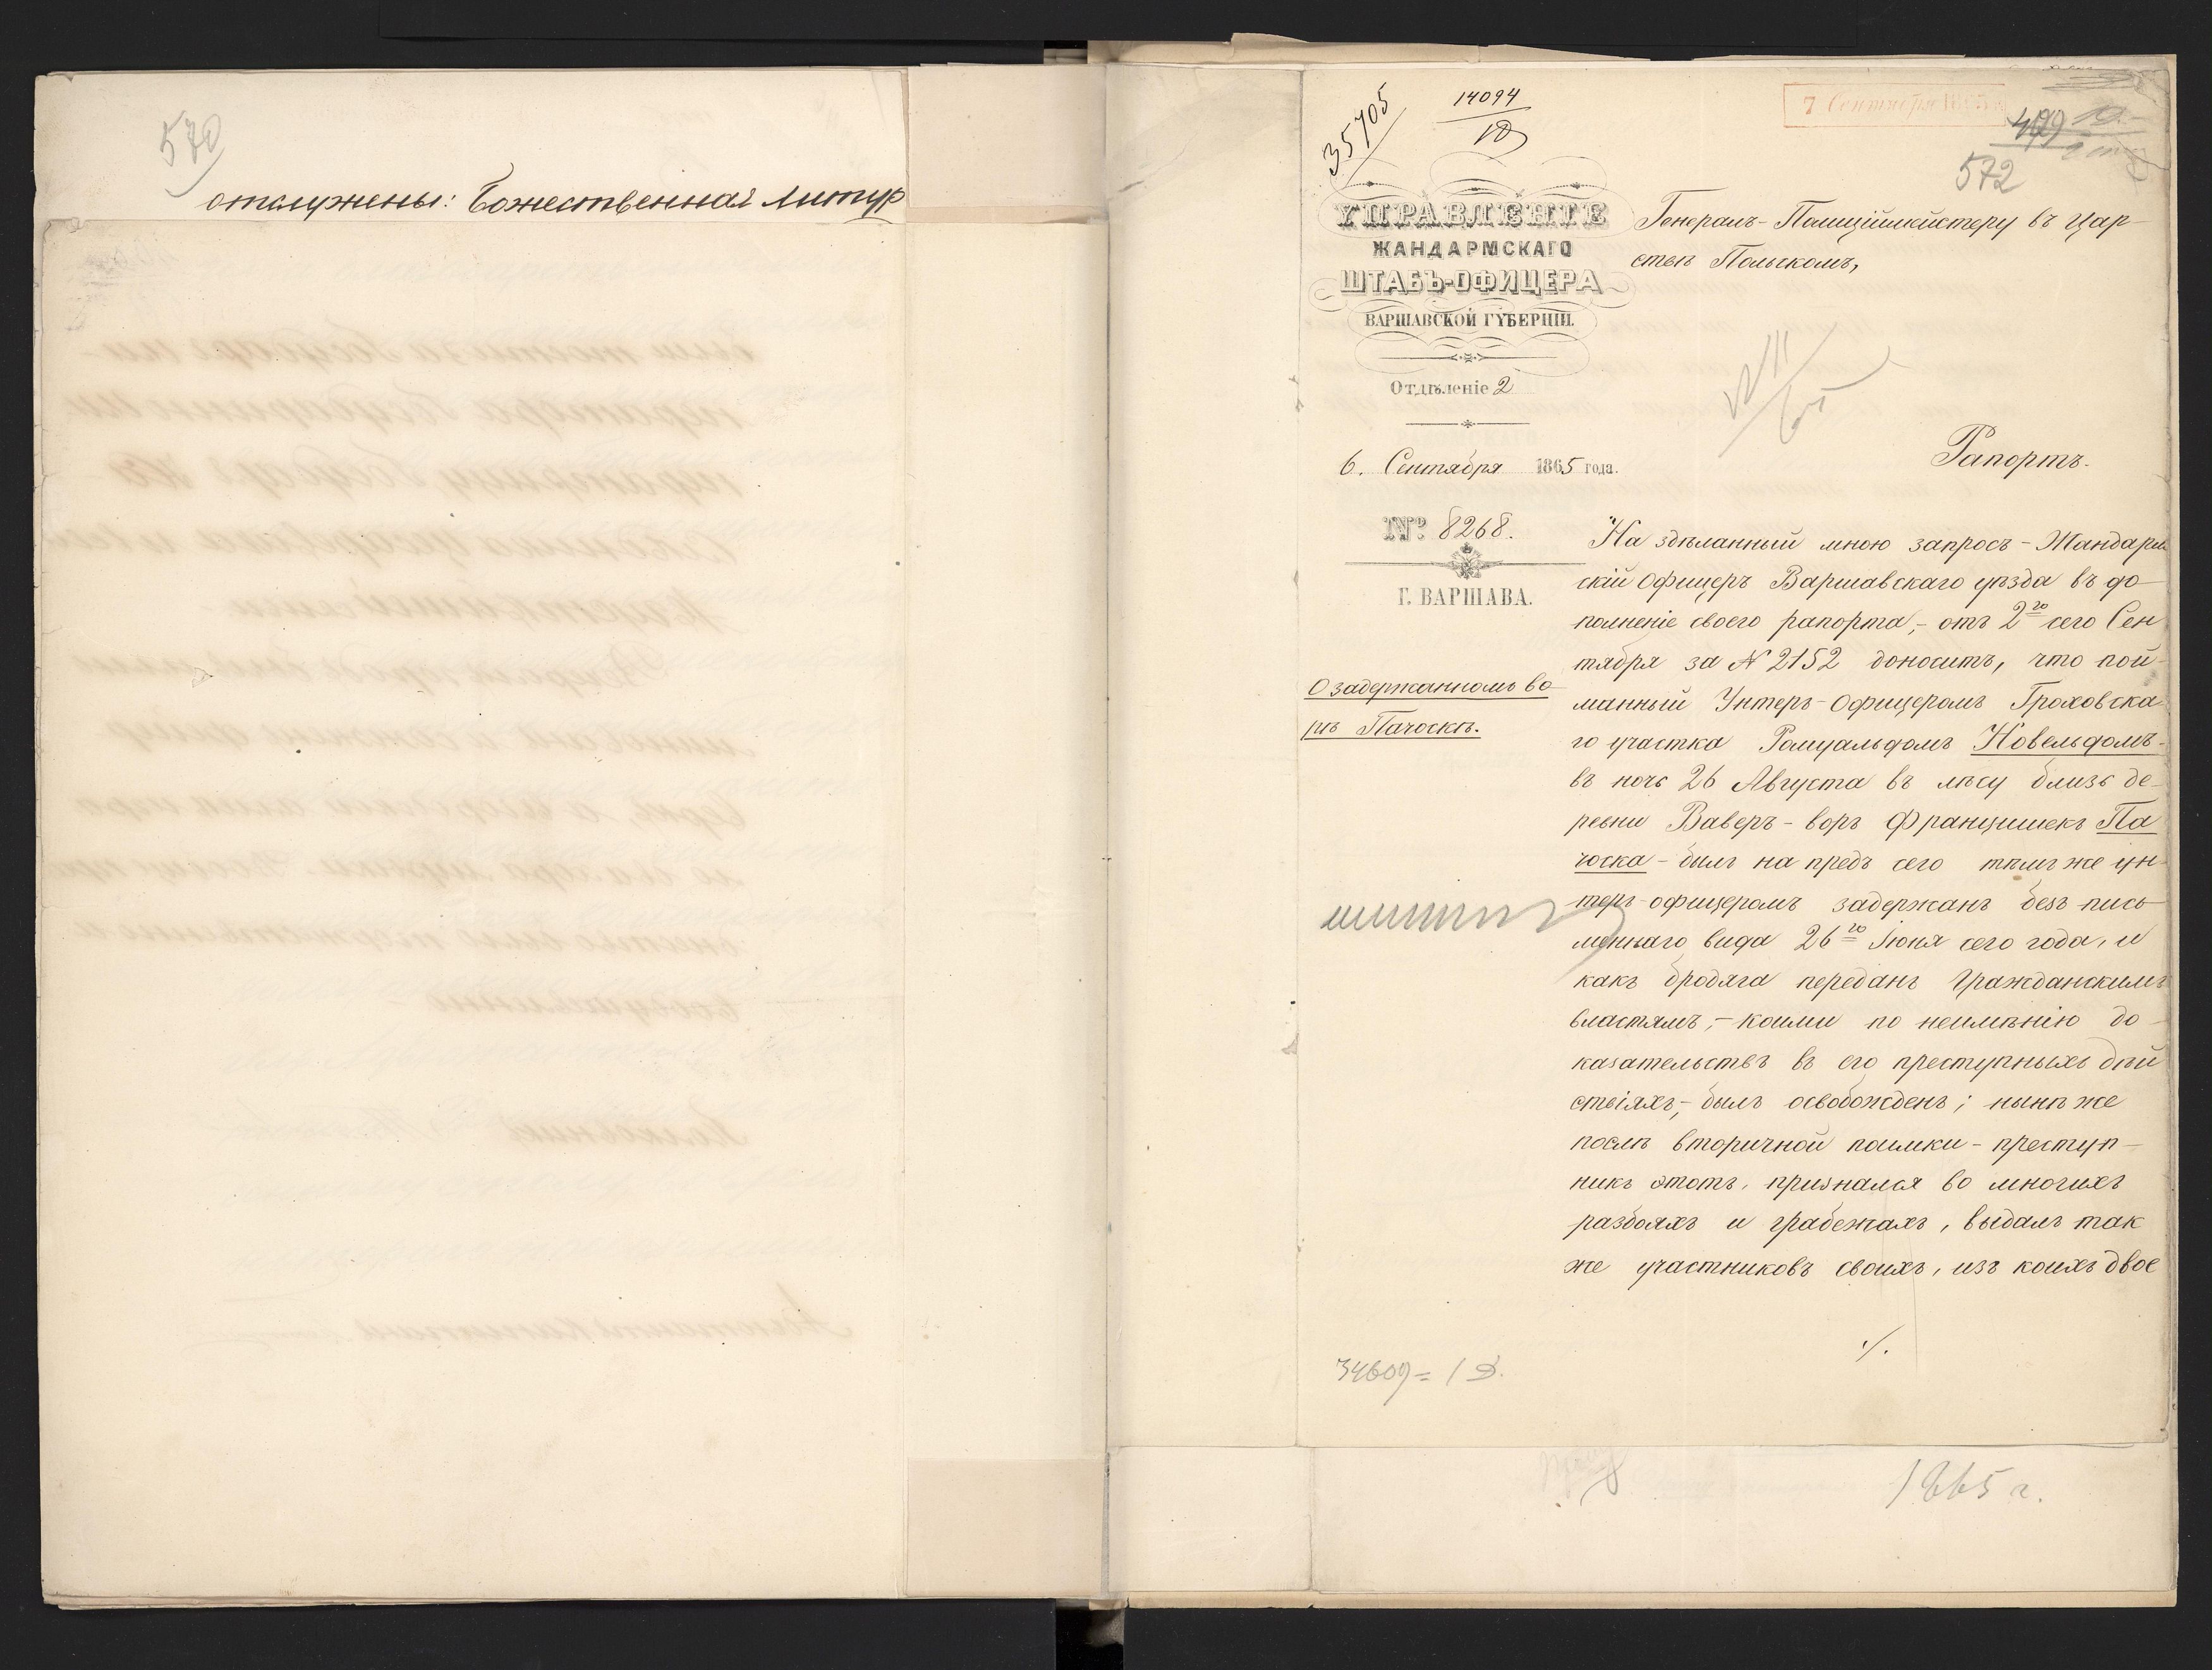 570
отслужены: Божественная Литур
35705
14094
7 Сентября
499
572
УПРАВЛЕНІЕ
ЖАНДАРМСКАГО
ШТАБЪ-ОФИЦЕРА
ВАРШАВСКОЙ ГУБЕРНІИ.
Отдѣленіе 2
6. Сентября 1865 года.
№ 8268.
Г. ВАРШАВА.
О задержанномъ во
рѣ Пачоскѣ.
Генералъ-Полиціймейстеру въ Цар-
ствѣ Польскомъ,
Рапортъ.
На здѣланный мною запросъ - Жандарм
скій Офицеръ Варшавскаго уѣзда въ до-
полненіе своего рапорта, - отъ 2го сего Сен
тября за № 2152 доноситъ, что пой-
манный Унтеръ-Офицеромъ Гроховска-
го участка Ромуальдомъ Новельдомъ -
въ ночь 26 Августа въ лѣсу близь де-
ревни Ваверъ - воръ Францишекъ Па
чоска - былъ на предъ сего тѣмъ же ун-
теръ-офицеромъ задержанъ безъ пись-
меннаго вида 26го Іюня сего года, и
какъ бродяга переданъ Гражданскимъ
властямъ, - коими по неимѣнію до-
казательствъ въ его преступныхъ дѣй
ствіяхъ, - былъ освобожденъ; нынѣ же
послѣ вторичной поимки - преступ-
никъ этотъ, признался во многихъ
разбояхъ и грабежахъ, выдалъ так
же участниковъ своихъ, изъ коихъ двое
./.
34609 = 1 Э.
1865 г.